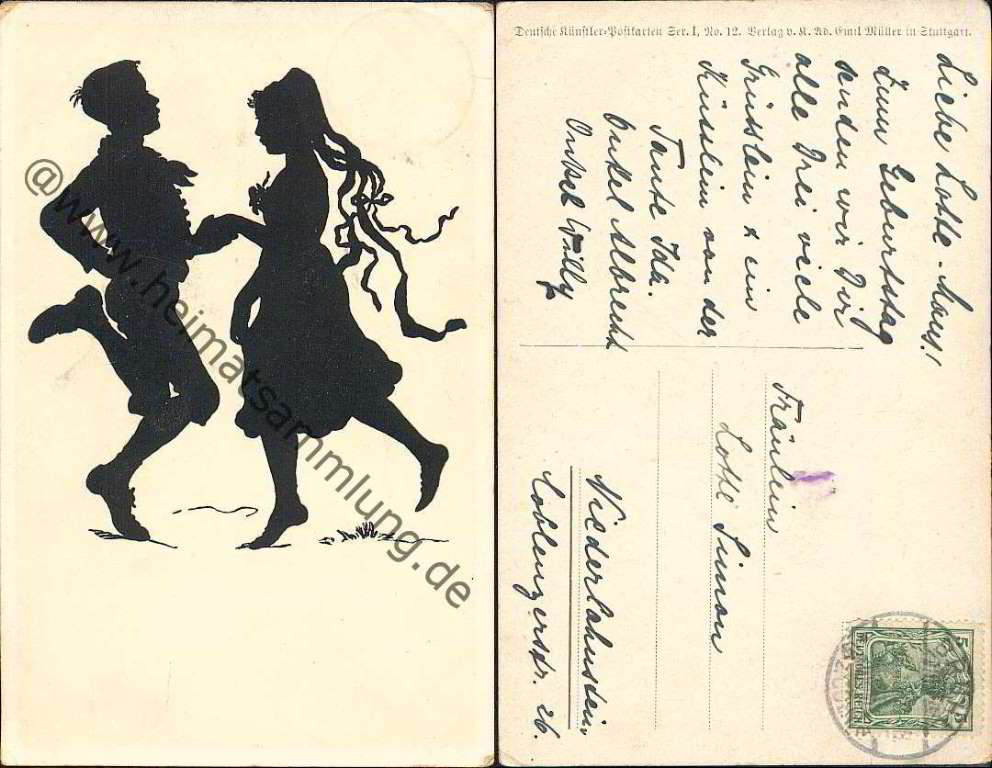 @www.heimatsammlung.de
Deutsche Künstler-Postkarten Ser. I, No. 12. Verlag v. K. Ad. Emil Müller in Stuttgart.
Liebe Lotte-Maus!
Zum Geburtstag
senden wir Dir
alle Drei viele
Grüsslein & ein
Küsslein von der
Tante Ida.
Onkel Albrecht
Onkel Willy
Fräulein
Lotte Simon
Niederlahnstein
Coblenzerstr. 26.
5
DEUTSCHES REICH